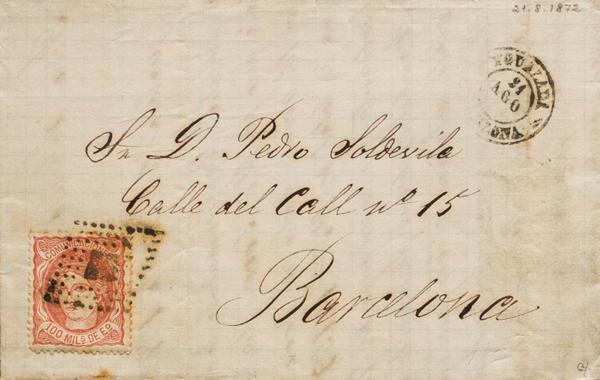 21.8.1872
IGUALADA
21
AGO
Sr. D. Pedro Soldevila
Calle del Call nº 15
Barcelona
COMUNICACIONES
100 MILS. DE Eº